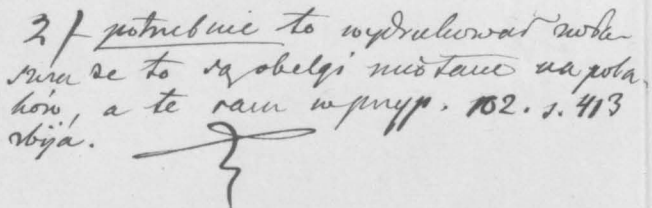 2/ potrzebnie to wydrukował zwła-
szcza że to są obelgi miotane na pola-
ków, a te sam w przyp. 102. s. 413
zbija.